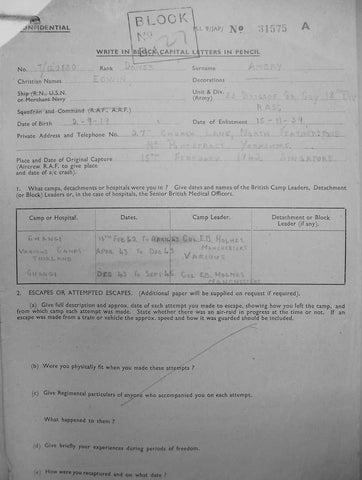 CONFIDENTIAL
BLOCK
No
27
No 31575 A
WRITE IN BLOCK CAPITAL LETTERS IN PENCIL
No. Rank DRIVER Surname
Christian Names EDWIN Decorations
Ship (R.N., U.S.N. or Merchant Navy
Unit & Div. (Army) 18 DIV
RASC
Squadron and Command (R.A.A.F., A.A.F.)
Date of Birth 2-9-19 Date of Enlistment 15-11-39
Private Address and Telephone No. 27 CHURCH LANE, NORTH FEATHERSTONE
Nr PONTEFRACT YORKSHIRE
Place and Date of Original Capture 15TH FEBRUARY 1942 SINGAPORE
(Aircrew R.A.F. to give place
and date of a/c crash).
1. What camps, detachments or hospitals were you in? Give dates and names of the British Camp Leaders, Detachment
(or Block) Leaders or, in the case of hospitals, the Senior British Medical Officers.
Camp or Hospital. Dates. Camp Leader. Detachment or Block Leader (if any).
CHANGI 15TH FEB 42 TO APRIL 43 COL E.B. HOLMES
MANCHESTERS
VARIOUS CAMPS THAILAND APRIL 43 TO DEC 43 VARIOUS
CHANGI DEC 43 TO SEPT 45 COL E.B. HOLMES
MANCHESTERS
2. ESCAPES OR ATTEMPTED ESCAPES. (Additional paper will be supplied on request if required).
(a) Give full description and approx. date of each attempt you made to escape, showing how you left the camp, and
from which camp each attempt was made. State whether there was an air-raid in progress at the time or not. If an
escape was made from a train or vehicle the approx. speed and how it was guarded should be included.
(b) Were you physically fit when you made these attempts?
(c) Give Regimental particulars of anyone who accompanied you on each attempt.
What happened to them?
(d) Give briefly your experiences during periods of freedom.
(e) How were you recaptured and on what date?